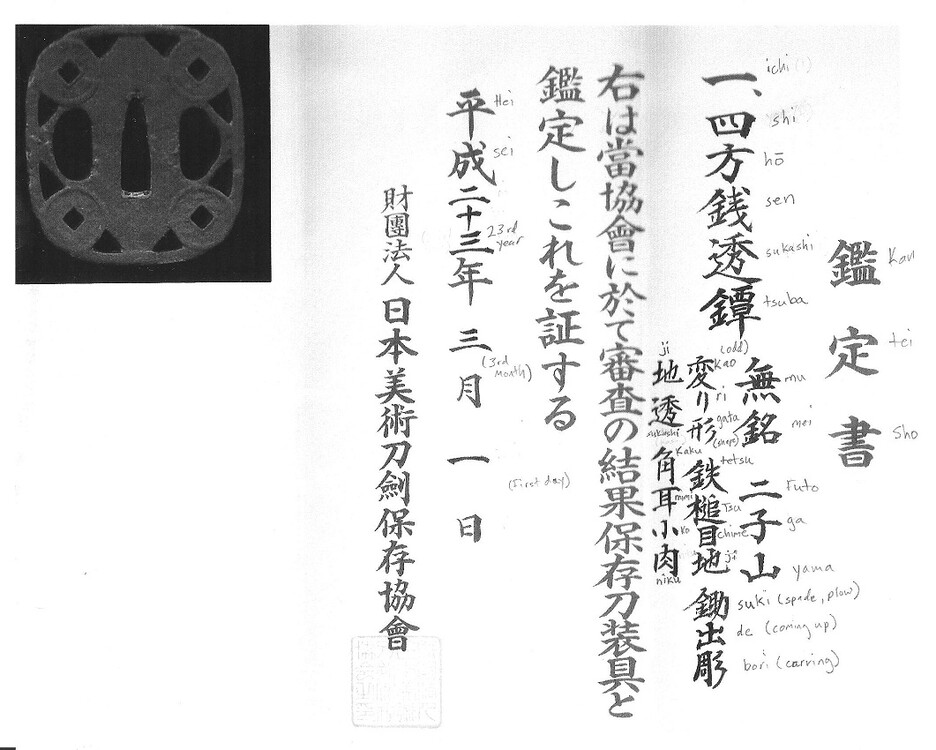 鑑定書
Kan
tei
Sho
一、四方銭透鐔 無銘 二子山
ichi (1)
shi
hō
sen
sukashi
tsuba
mu
mei
Futo
ga
yama
変り形 鉄槌目地 鋤出彫
(odd)
Kao
ri
gata
(shape)
tetsu
Tsu
chime
ji
suki (spade, plow)
de (coming up)
bori (carving)
地透 角耳小肉
ji
sukashi
Kaku
mimi
ko
niku
右は當協會に於て審査の結果保存刀装具と
鑑定しこれを証する
平成二十三年三月一日
Hei
sei
23rd
year
(3rd
month)
(first day)
財團法人 日本美術刀劍保存協會